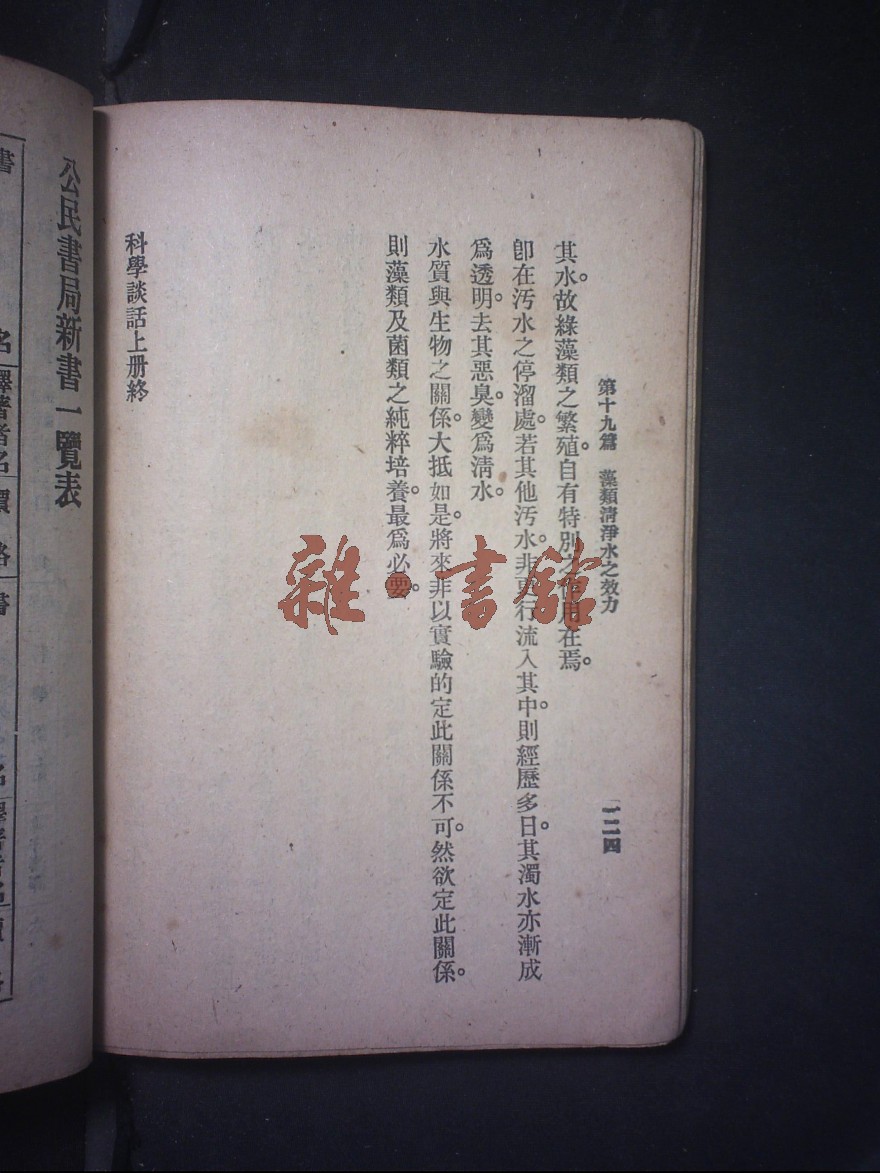 第十九篇　藻類清淨水之效力
一二四
其水。故綠藻類之繁殖。自有特別之作用在焉。
卽在汚水之停溜處。若其他汚水。非更行流入其中。則經歷多日。其濁水亦漸成
爲透明。去其惡臭。變爲淸水。
水質與生物之關係。大抵如是。將來非以實驗的定此關係不可。然欲定此關係。
則藻類及菌類之純粹培養。最爲必要。
科學談話上册終
公民書局新書一覽表
書
名
譯著者名
價格
書
名
譯著者名
價
雜書館